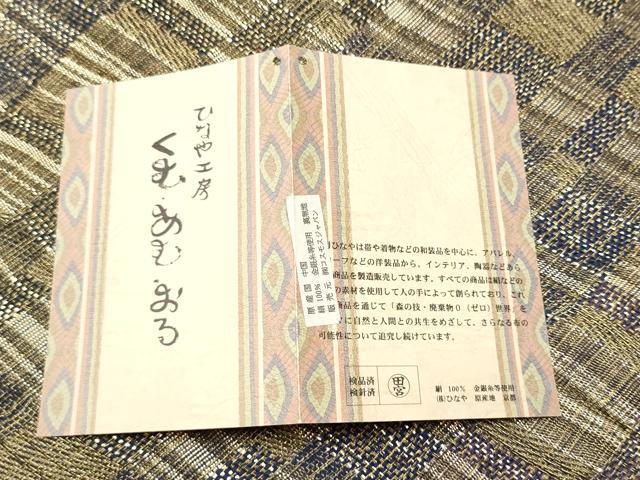 ひなや工房
くむ・あむ・おる
原産国 中国
絹100% 金銀糸等使用
販売元 ㈱コスモスジャパン
ひなやは帯や着物などの和装品を中心に、アパレル、
ーフなどの洋装品から、インテリア、陶器などあら
商品を製造販売しています。すべての商品は絹などの
の素材を使用して人の手によって創られており、これ
商品を通じて「森の技・廃棄物0(ゼロ)世界」を
に自然と人間との共生をめざして、さらなる布の
可能性について追究し続けています。
検品済
検針済
田宮
絹 100% 金銀糸等使用
(株)ひなや 原産地 京都